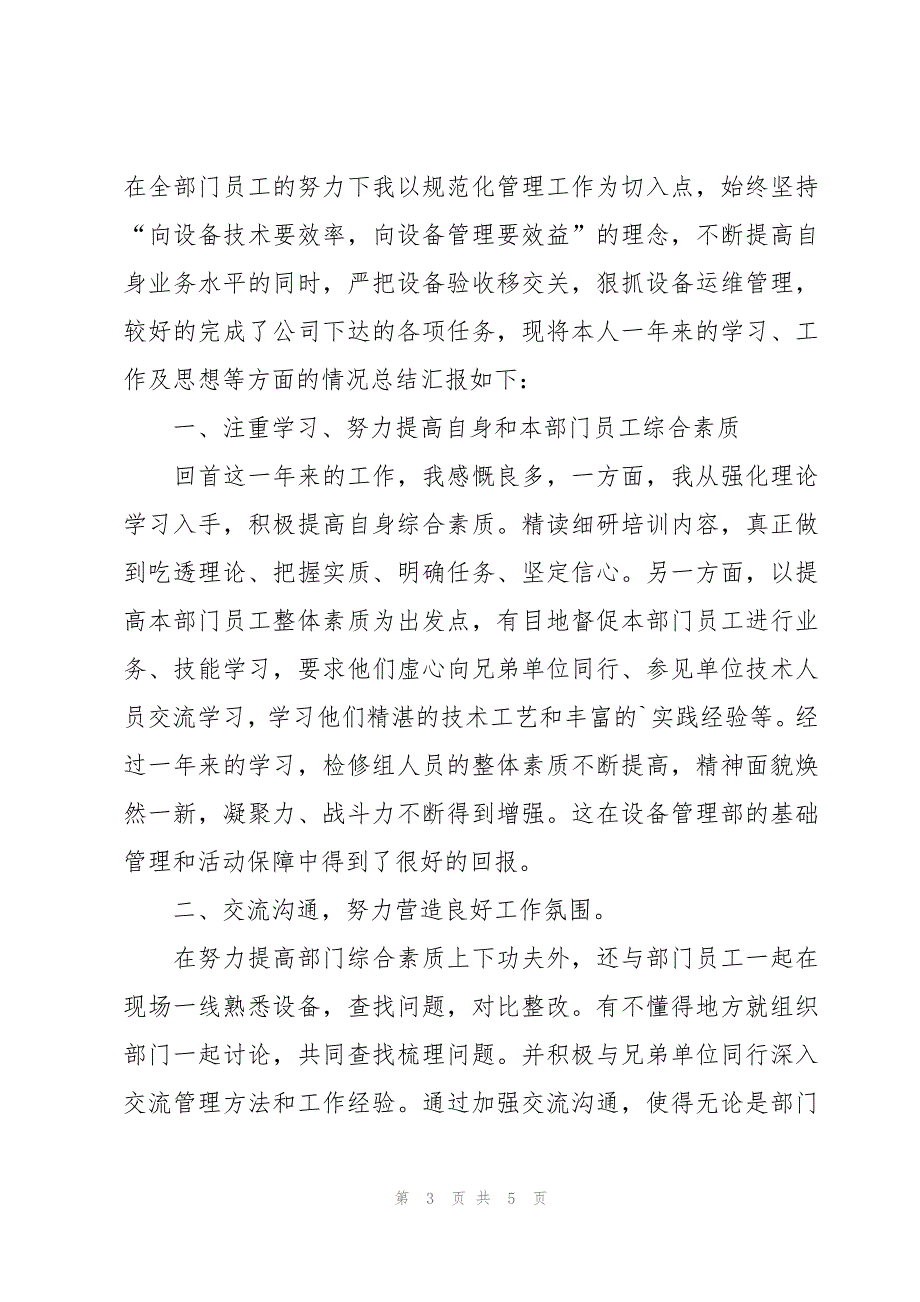 在全部门员工的努力下我以规范化管理工作为切入点，始终坚持
“向设备技术要效率，向设备管理要效益”的理念，不断提高自
身业务水平的同时，严把设备验收移交关，狠抓设备运维管理，
较好的完成了公司下达的各项任务，现将本人一年来的学习、工
作及思想等方面的情况总结汇报如下：
一、注重学习、努力提高自身和本部门员工综合素质
回首这一年来的工作，我感慨良多，一方面，我从强化理论
学习入手，积极提高自身综合素质。精读细研培训内容，真正做
到吃透理论、把握实质、明确任务、坚定信心。另一方面，以提
高本部门员工整体素质为出发点，有目地督促本部门员工进行业
务、技能学习，要求他们虚心向兄弟单位同行、参见单位技术人
员交流学习，学习他们精湛的技术工艺和丰富的`实践经验等。经
过一年来的学习，检修组人员的整体素质不断提高，精神面貌焕
然一新，凝聚力、战斗力不断得到增强。这在设备管理部的基础
管理和活动保障中得到了很好的回报。
二、交流沟通，努力营造良好工作氛围。
在努力提高部门综合素质上下功夫外，还与部门员工一起在
现场一线熟悉设备，查找问题，对比整改。有不懂得地方就组织
部门一起讨论，共同查找梳理问题。并积极与兄弟单位同行深入
交流管理方法和工作经验。通过加强交流沟通，使得无论是部门
第 3 页 共 5 页